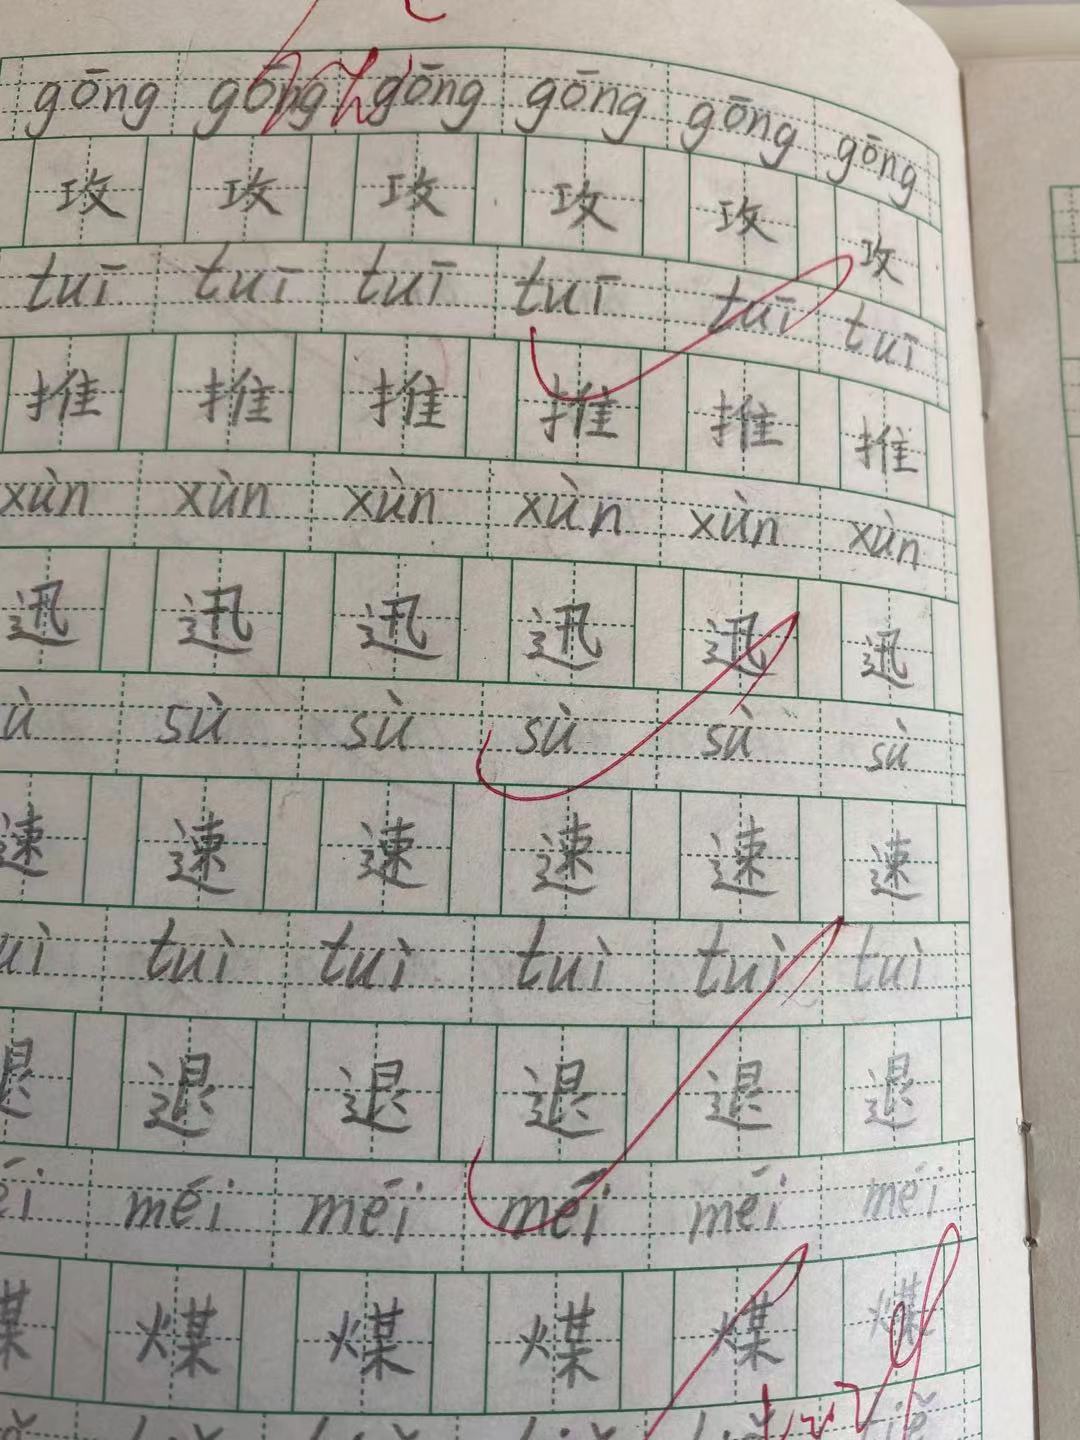 gōng gōng gōng gōng gōng gōng
攻 攻 攻 攻 攻 攻
tuī tuī tuī tuī tuī tuī
推 推 推 推 推 推
xùn xùn xùn xùn xùn xùn
迅 迅 迅 迅 迅 迅
ù sù sù sù sù sù
速 速 速 速 速 速
uì tuì tuì tuì tuì tuì
退 退 退 退 退 退
éi méi méi méi méi méi
煤 煤 煤 煤 煤 煤